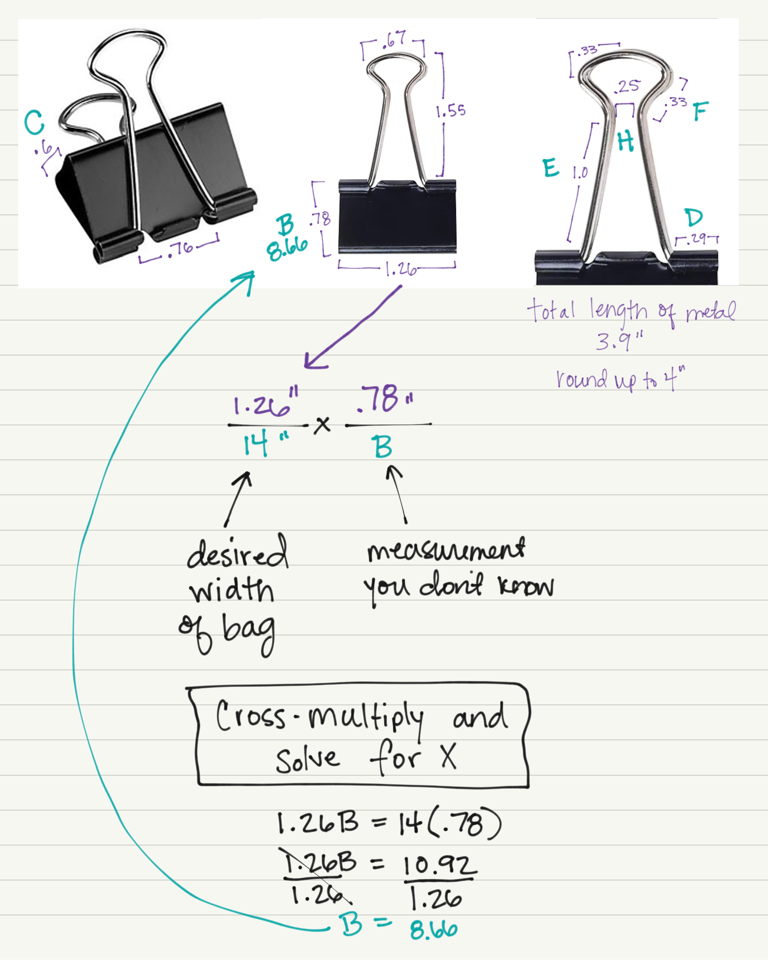 C
.6
.76
.67
1.55
B
8.66
.78
1.26
.33
.25
.33
F
H
E
1.0
D
.29
total length of metal
3.9"
round up to 4"
1.26" x .78"
14" B
desired
width
of bag
measurement
you don't know
Cross-multiply and
solve for X
1.26B = 14(.78)
1.26B = 10.92
1.26 1.26
B = 8.66